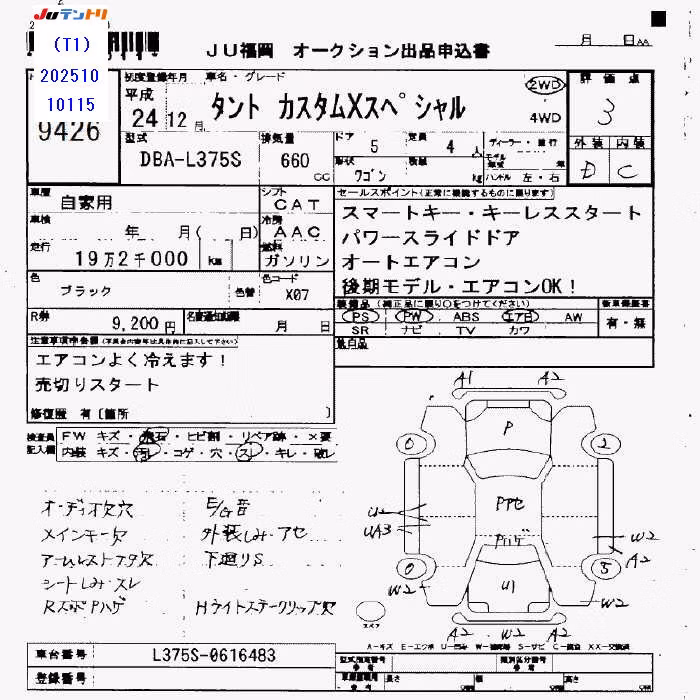 Juテントリ
(T1)
202510
10115
9426
JU福岡 オークション出品申込書
月 日AA
初度登録年月 車名・グレード
平成
24 12月
タント カスタムXスペシャル
2WD
4WD
評価点
3
外装 内装
D C
型式
DBA-L375S
排気量
660 CC
ドア 5
定員 4 人
形状 ワゴン
kg
ハンドル 左・右
車歴
自家用
シフト
CAT
車検
年 月( 日)
冷房
AAC
走行
19万2千000 km
燃料
ガソリン
色
ブラック
色替
色コード
X07
セールスポイント(正常に機能するものに限ります)
スマートキー・キーレススタート
パワースライドドア
オートエアコン
後期モデル・エアコンOK!
装備品(純正品に限り○をつけてください)
PS PW ABS エアB AW
SR ナビ TV カワ
新車保証書
有・無
R券
9,200円
名変通知期限
月 日
注意事項申告欄
エアコンよく冷えます!
売切りスタート
修復歴 有〔箇所 〕
検査員記入欄
FW キズ・飛石・ヒビ割・リペア跡・×要
内装 キズ・汚れ・コゲ・穴・スレ・キレ・破レ
オーディオ欠穴
E/G音
メインキー欠
外装しみ・アセ
アームレストフタ欠
下廻りS
シートしみ・スレ
RスポPハゲ
Hライトステークリップ欠
A1
A2
P
0
2
PアセPハゲ
U2
UA3
W2
A2
0
5
W2
U1
W2
A2 W2 A2
スペア
車台番号
L375S-0616483
登録番号
型式指定番号
類別区分番号
長さ cm 幅 cm 高さ cm